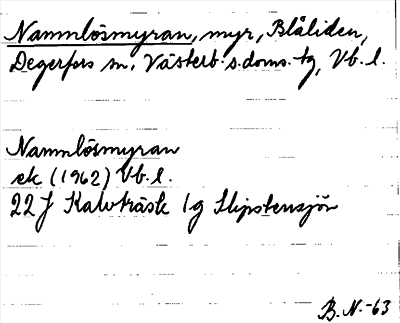 Nammlösmyran, myr, Blåliden,
Degerfors sn. Västerb:s.doms. tg, Vb. l.
Nammlösmyran
ek (1962) Vb. l.
22 J Kalvträsk 1g Slipstensjön
B. N. -63